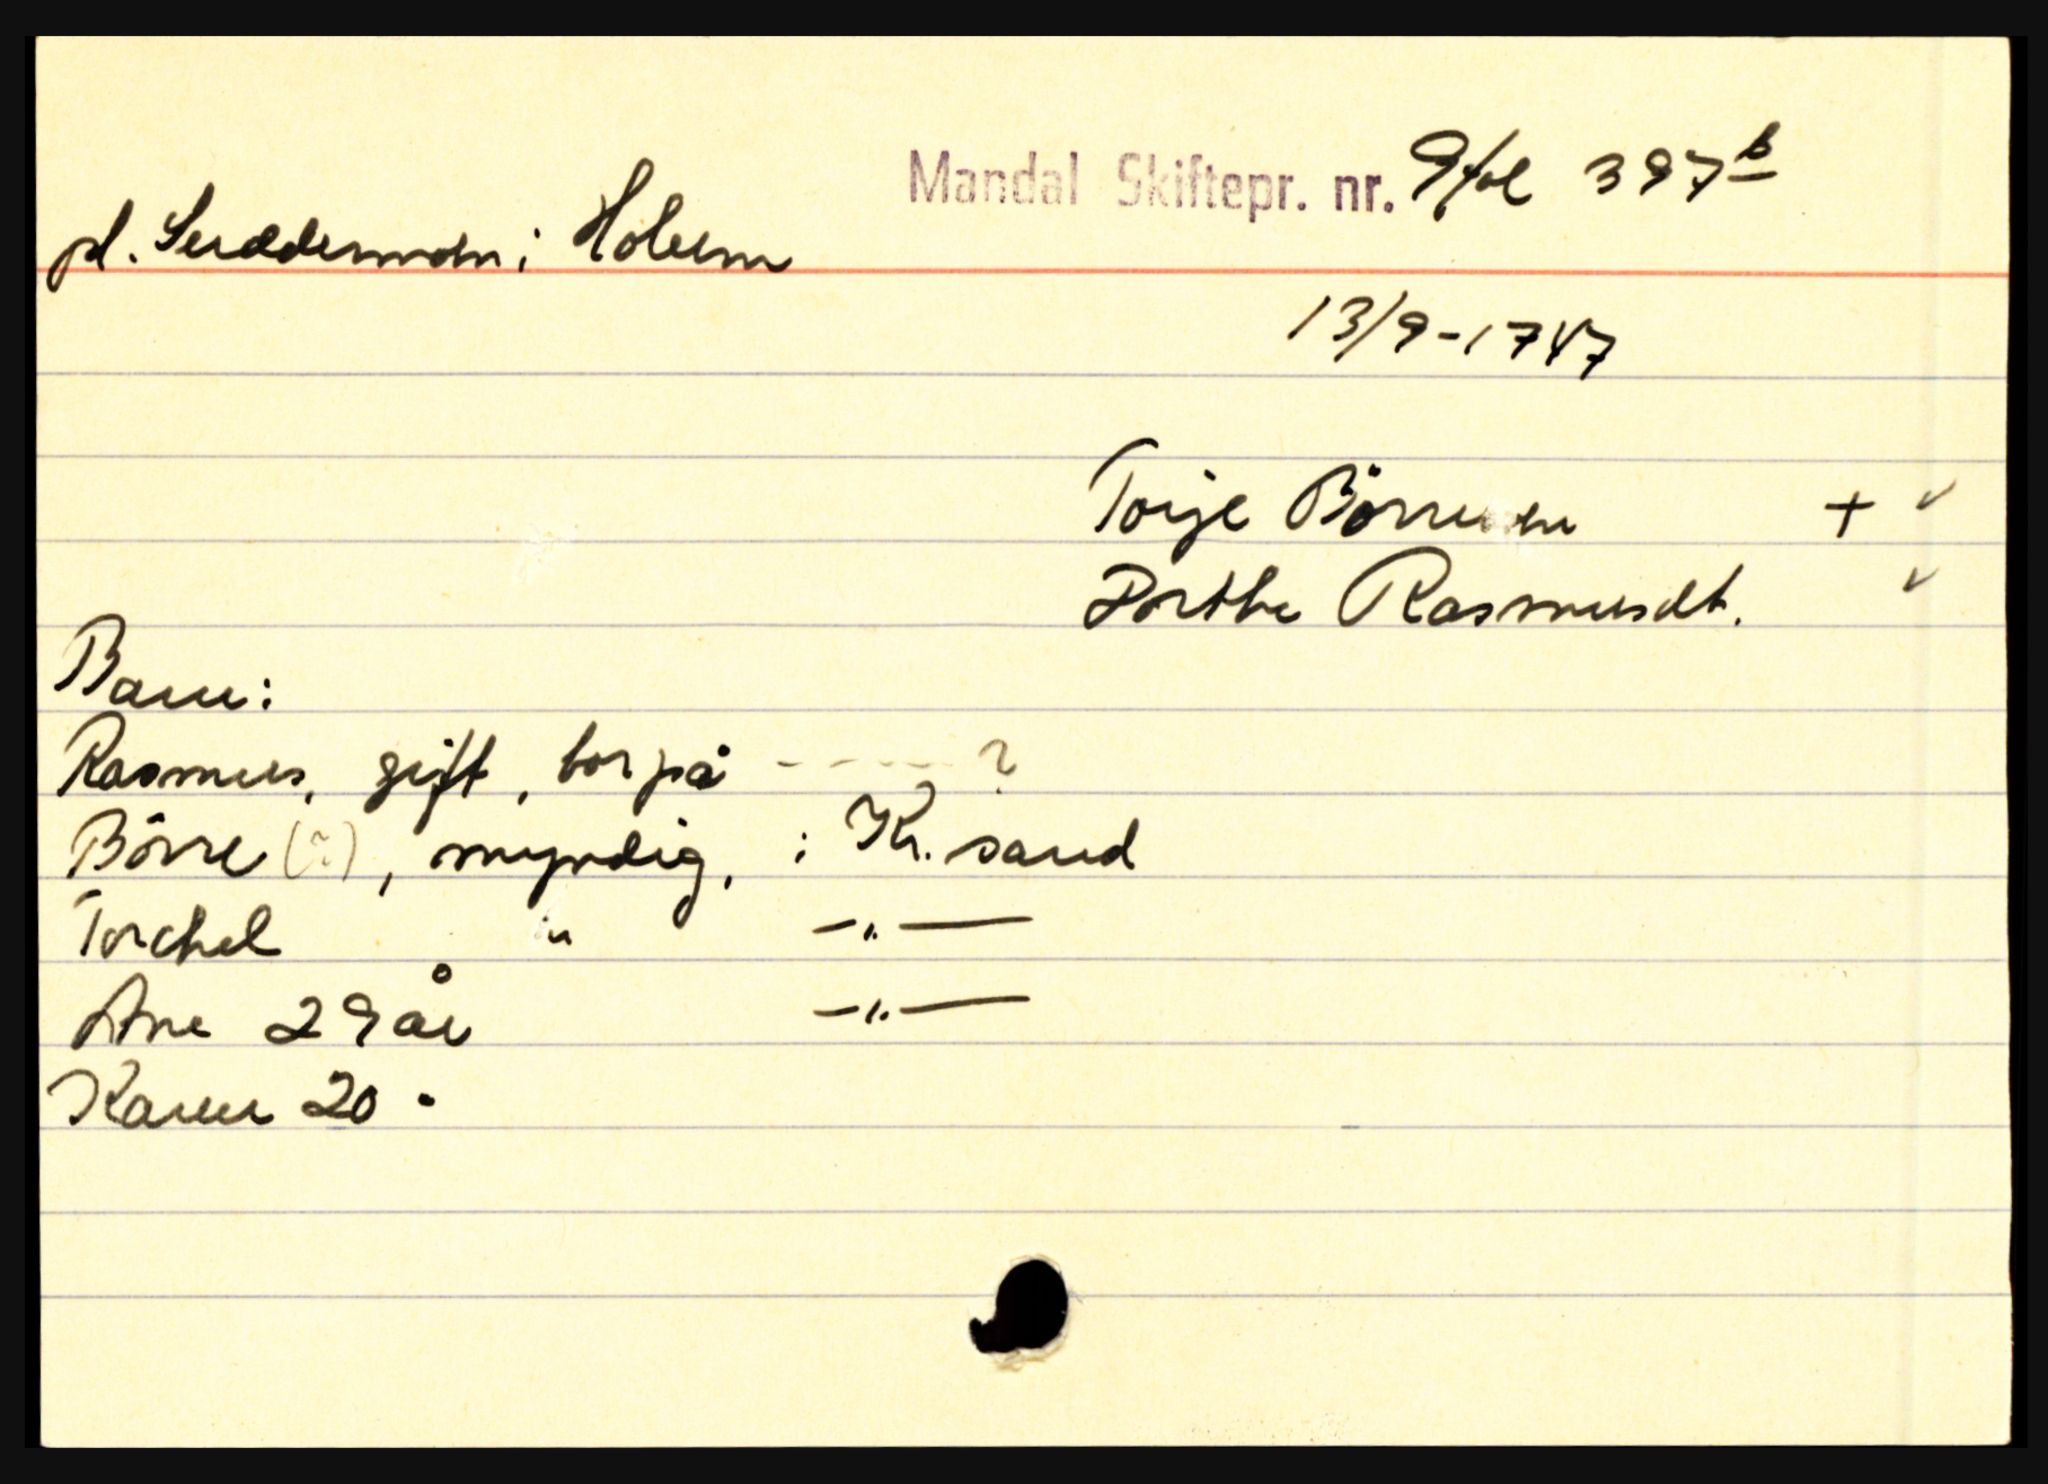 Mandal Skiftepr. nr. 9 fol 397 b
pl. i Holum
13/9-1747
Torje Börresen + ✓
Dorthe Rasmusdt. ✓
Barn:
Rasmus, gift, bor på - - - - - ?
Börre (?), myndig, i Kr. sand
Torchel " -"-
Ane 29 år -"-
Karen 20 "